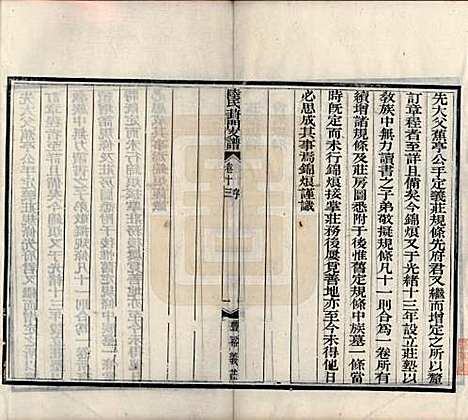 先大父蕉亭公手定義莊規條先府君又繼而增定之所以釐
訂章程者至詳且備矣今錦烺又于光緒十三年設立莊塾以
教族中無力讀書之子弟敬擬規條凡十一則合為一卷所有
續增諸規條及莊房圖悉附于後惟舊定規條中族墓一條當
時既定而未行錦烺接掌莊務後屢覓善地亦至今未得他日
必思成其事焉錦烺謹識
陸氏葑門支譜
卷十三 序
一
豐裕義莊